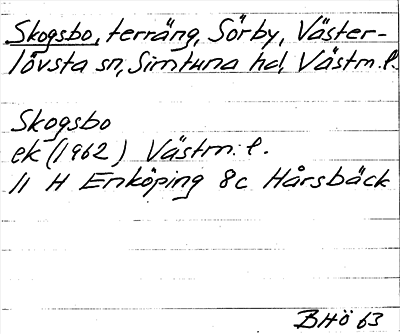 Skogsbo, terräng, Sörby, Väster-
lövsta sn, Simtuna hd, Västm. l.
Skogsbo
ek (1962) Västm. l.
11 H Enköping 8c Hårsbäck
BHÖ 63